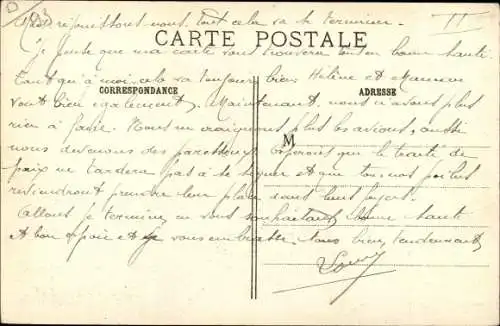 Mais réjouissons-nous, tout cela va se terminer.
Je pense que ma carte vous trouvera tous en bonne santé.
CARTE POSTALE
Tant qu'à moi, cela va toujours bien. Hélène et Maman
CORRESPONDANCE
ADRESSE
vont bien également. Maintenant, nous n'avons plus
rien à faire. Nous ne craignons plus les avions, aussi
M
nous devenons des paresseux. Espérons que le traité de
paix ne tardera pas à se signer et que tous nos poilus
reviendront prendre leur place dans leurs foyers.
Allons je termine en vous souhaitant bonne santé
et bon espoir et je vous embrasse tous bien tendrement